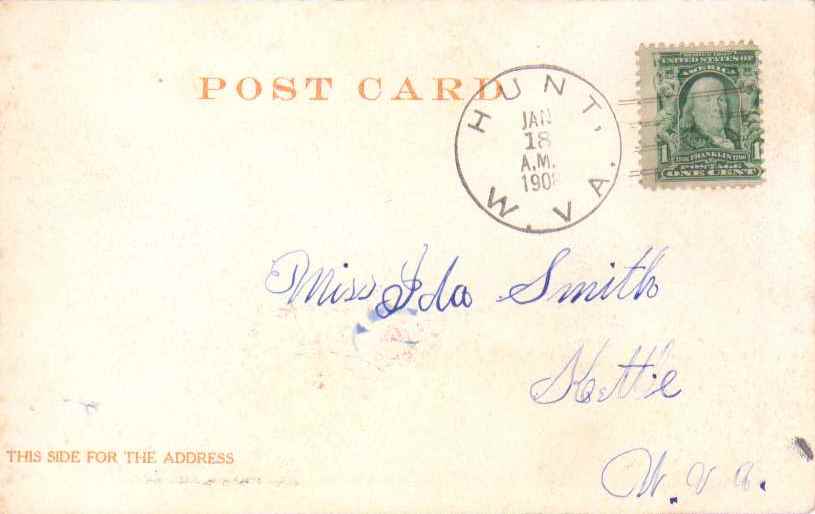 POST CARD
HUNT, W. VA.
JAN
18
A.M.
190
SERIES 1902
UNITED STATES OF
AMERICA
1 1
FRANKLIN
POSTAGE
ONE CENT
Miss Ida Smith
Kettle
W. Va.
THIS SIDE FOR THE ADDRESS